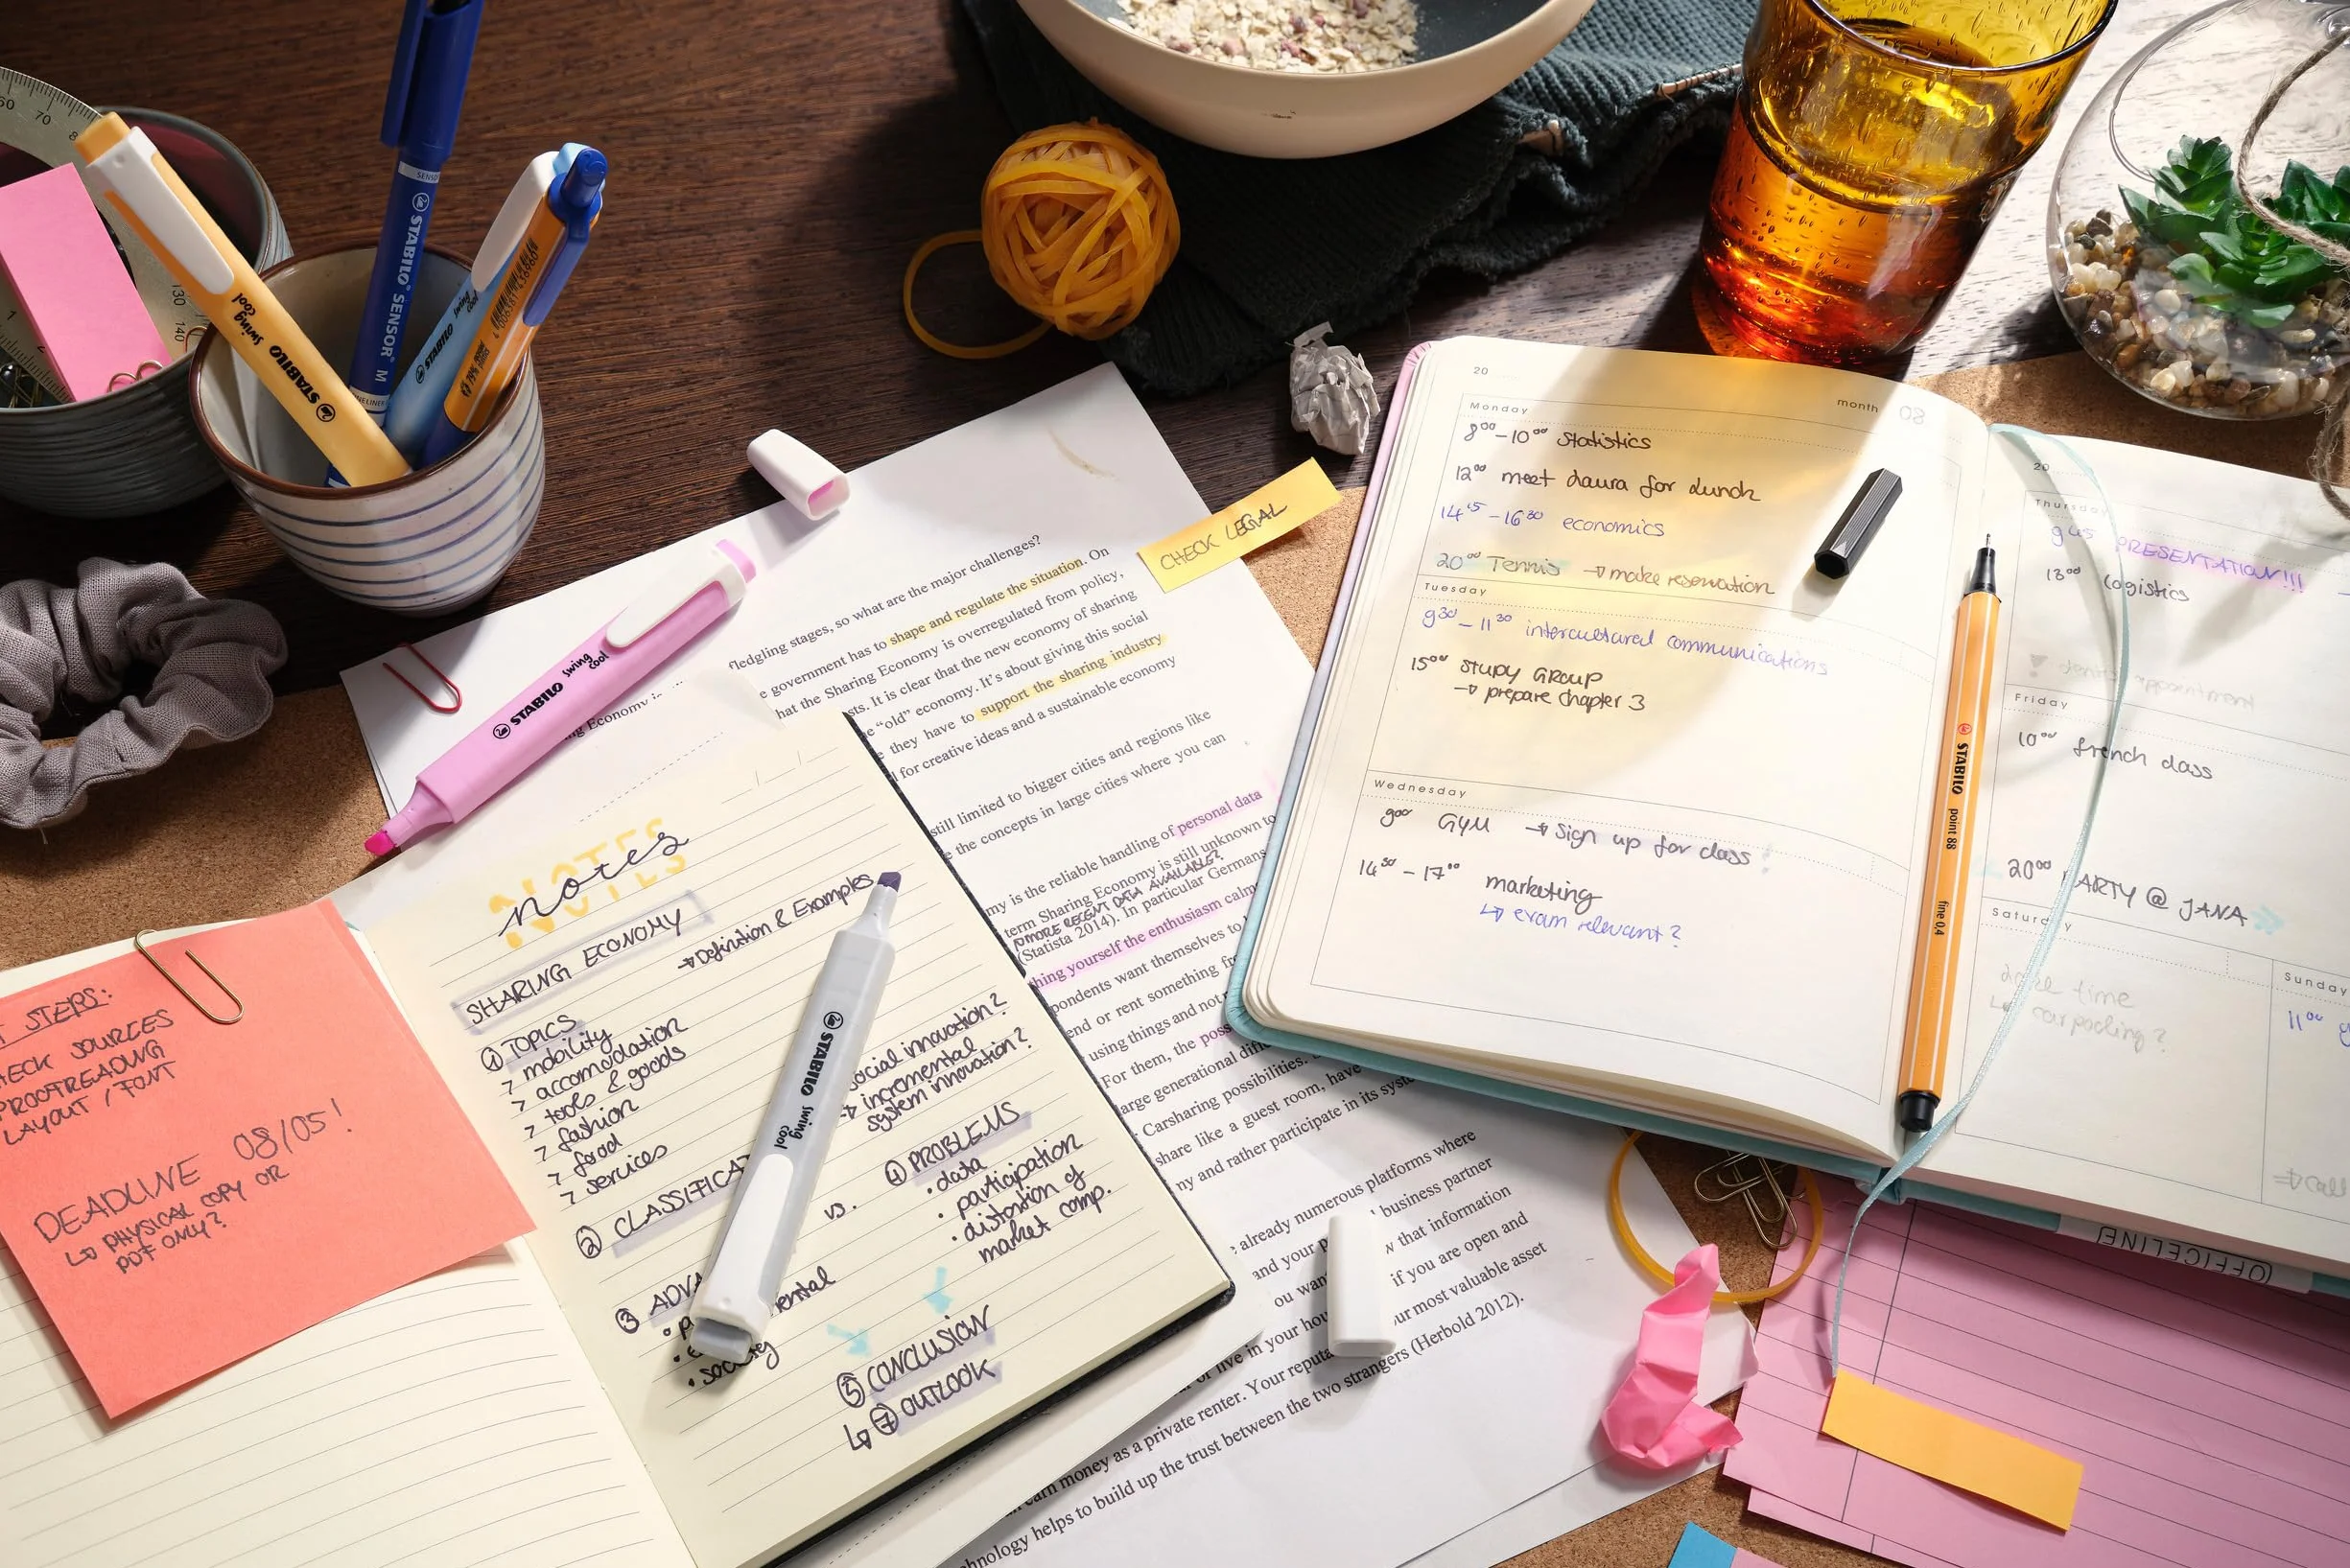 60
70
130
140
STABILO swing cool
STABILO SENSOR M
STABILO swing cool
STABILO swing cool
fledgling stages, so what are the major challenges?
government has to shape and regulate the situation. On
hat the Sharing Economy is overregulated from policy,
sts. It is clear that the new economy of sharing
"old" economy. It's about giving this social
they have to support the sharing industry
for creative ideas and a sustainable economy
still limited to bigger cities and regions like
the concepts in large cities where you can
my is the reliable handling of personal data
term Sharing Economy is still unknown to
MORE RECENT DATA AVAILABLE?
(Statista 2014). In particular Germans
hing yourself the enthusiasm calm
pondents want themselves to
end or rent something
using things and not
For them, the poss
large generational
Carsharing possibilities.
share like a guest room, have
ny and rather participate in its syst
already numerous platforms where
and your p business partner
ou want w that information
in your hou if you are open and
or live in your reputa ur most valuable asset
earn money as a private renter. Your
hnology helps to build up the trust between the two strangers (Herbold 2012).
CHECK LEGAL
NOTES
notes
SHARING ECONOMY
→ Definition & Examples
① TOPICS
> mobility
> accomodation
> tools & goods
> fashion
> food
> services
social innovation?
→ incremental
system innovation?
② CLASSIFICAT
vs.
④ PROBLEMS
• data
• participation
• distortion of
market comp.
③ ADVA
• p
• e ental
• society
⑤ CONCLUSION
↳ ⑦ OUTLOOK
STABILO swing cool
T STEPS:
HECK SOURCES
PROOFREADING
LAYOUT / FONT
DEADLINE 08/05!
↳ PHYSICAL COPY OR
PDF ONLY?
20
month 08
Monday
8⁰⁰-10⁰⁰ statistics
12⁰⁰ meet Laura for Lunch
14¹⁵-16³⁰ economics
20⁰⁰ Tennis → make reservation
Tuesday
9³⁰-11³⁰ intercultural communications
15⁰⁰ STUDY GROUP
→ prepare chapter 3
Wednesday
9⁰⁰ GYM → Sign up for class!
14³⁰-17⁰⁰ marketing
↳ exam relevant?
STABILO point 88 fine 0,4
20
Thursday
9⁴⁵ PRESENTATION!!!
13⁰⁰ logistics
Friday
10⁰⁰ french class
20⁰⁰ PARTY @ JANA
Saturday
time
↳ carpooling?
Sunday
11⁰⁰
call
OFFICELINE